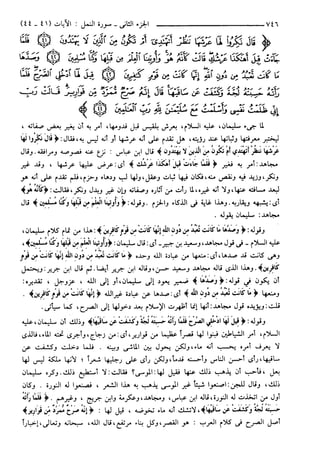 ٧٤٦ الجزء الثانى ـ سورة النمل : الآيات (٤١ ـ ٤٤)
﴿ قَالَ نَكِّرُوا لَهَا عَرْشَهَا نَنظُرْ أَتَهْتَدِي أَمْ تَكُونُ مِنَ الَّذِينَ لَا يَهْتَدُونَ
قِيلَ أَهَكَذَا عَرْشُكِ قَالَتْ كَأَنَّهُ هُوَ وَأُوتِينَا الْعِلْمَ مِن قَبْلِهَا وَكُنَّا مُسْلِمِينَ وَصَدَّهَا
مَا كَانَت تَّعْبُدُ مِن دُونِ اللَّهِ إِنَّهَا كَانَتْ مِن قَوْمٍ كَافِرِينَ قِيلَ لَهَا ادْخُلِي الصَّرْحَ فَلَمَّا
رَأَتْهُ حَسِبَتْهُ لُجَّةً وَكَشَفَتْ عَن سَاقَيْهَا قَالَ إِنَّهُ صَرْحٌ مُّمَرَّدٌ مِّن قَوَارِيرَ قَالَتْ رَبِّ
إِنِّي ظَلَمْتُ نَفْسِي وَأَسْلَمْتُ مَعَ سُلَيْمَانَ لِلَّهِ رَبِّ الْعَالَمِينَ ﴾
لما جىء سليمان، عليه السلام، بعرش بلقيس قبل قدومها، أمر به أن يغير بعض صفاته ،
ليختبر معرفتها وثباتها عند رؤيته، هل تقدم على أنه عرشها أو أنه ليس به، فقال: ﴿نَكِّرُوا لَهَا
عَرْشَهَا نَنظُرْ أَتَهْتَدِي أَمْ تَكُونُ مِنَ الَّذِينَ لَا يَهْتَدُونَ﴾ قال ابن عباس : نزع عنه فصوصه ومرافقه. وقال
مجاهد: أمر به فغير ﴿فَلَمَّا جَاءَتْ قِيلَ أَهَكَذَا عَرْشُكِ﴾ أى: عرض عليها عرشها ، وقد غير
ونكر، وزيد فيه ونقص منه، فكان فيها ثبات وعقل، ولها لب ودهاء وحزم، فلم تقدم على أنه هو
لبعد مسافته عنها، ولا أنه غيره، لما رأت من آثاره وصفاته وإن غير وبدل ونكر، فقالت: ﴿كَأَنَّهُ هُوَ﴾
أى: يشبهه ويقاربه. وهذا غاية فى الذكاء والحزم. وقوله: ﴿وَأُوتِينَا الْعِلْمَ مِن قَبْلِهَا وَكُنَّا مُسْلِمِينَ﴾ قال
مجاهد: سليمان يقوله .
وقوله: ﴿وَصَدَّهَا مَا كَانَت تَّعْبُدُ مِن دُونِ اللَّهِ إِنَّهَا كَانَتْ مِن قَوْمٍ كَافِرِينَ﴾: هذا من تمام كلام سليمان،
عليه السلام ـ فى قول مجاهد، وسعيد بن جبير ـ أى: قال سليمان: ﴿وَأُوتِينَا الْعِلْمَ مِن قَبْلِهَا وَكُنَّا مُسْلِمِينَ﴾،
وهى كانت قد صدها، أى: منعها من عبادة الله وحده ﴿مَا كَانَت تَّعْبُدُ مِن دُونِ اللَّهِ إِنَّهَا كَانَتْ مِن قَوْمٍ
كَافِرِينَ﴾. وهذا الذى قاله مجاهد وسعيد حسن، وقاله ابن جرير أيضا. ثم قال ابن جرير: ويحتمل
أن يكون فى قوله: ﴿وَصَدَّهَا﴾ ضمير يعود إلى سليمان، أو إلى الله ، عزوجل ، تقديره:
ومنعها ﴿مَا كَانَت تَّعْبُدُ مِن دُونِ اللَّهِ﴾ أى: صدها عن عبادة غير الله ﴿إِنَّهَا كَانَتْ مِن قَوْمٍ كَافِرِينَ﴾ .
قلت: ويؤيده قول مجاهد: أنها إنما أظهرت الإسلام بعد دخولها إلى الصرح، كما سيأتى.
وقوله: ﴿قِيلَ لَهَا ادْخُلِي الصَّرْحَ فَلَمَّا رَأَتْهُ حَسِبَتْهُ لُجَّةً وَكَشَفَتْ عَن سَاقَيْهَا﴾ وذلك أن سليمان، عليه
السلام، أمر الشياطين فبنوا لها قصرا عظيما من قوارير، أى: من زجاج، وأجرى تحته الماء، فالذى
لا يعرف أمره يحسب أنه ماء، ولكن يحول بين الماشى وبينه . فلما دخلت وكشفت عن
ساقيها، رأى أحسن الناس وأحسنه قدما، ولكن رأى على رجليها شعرا ؛ لأنها ملكة ليس لها
بعل، فأحب أن يذهب ذلك عنها فقيل لها: الموسى؟ فقالت: لا أستطيع ذلك. وكره سليمان
ذلك، وقال للجن: اصنعوا شيئا غير الموسى يذهب به هذا الشعر ، فصنعوا له النورة . وكان
أول من اتخذت له النورة، قاله ابن عباس، ومجاهد، وعكرمة وابن جريج ، وغيرهم . ﴿فَلَمَّا رَأَتْهُ
حَسِبَتْهُ لُجَّةً وَكَشَفَتْ عَن سَاقَيْهَا﴾، لاتشك أنه ماء تخوضه ، قيل لها : ﴿إِنَّهُ صَرْحٌ مُّمَرَّدٌ مِّن قَوَارِيرَ﴾
أصل الصرح فى كلام العرب : هو القصر، وكل بناء مرتفع، قال الله، سبحانه وتعالى، إخباراً